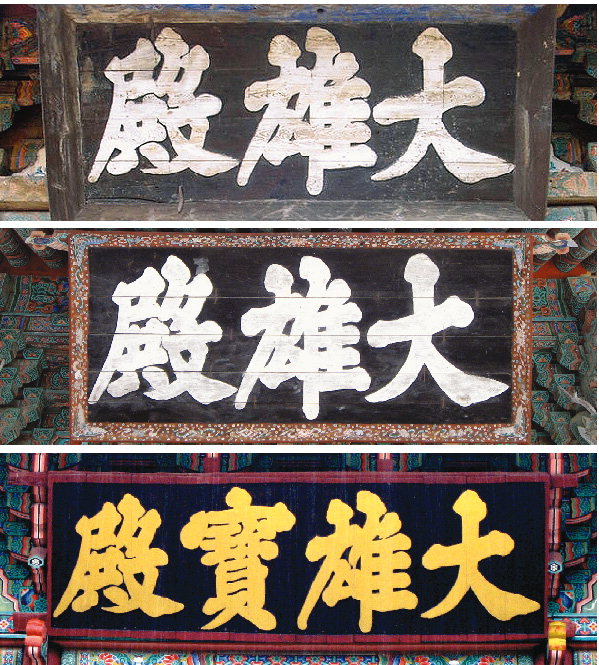 大雄殿
大雄殿
大雄寶殿